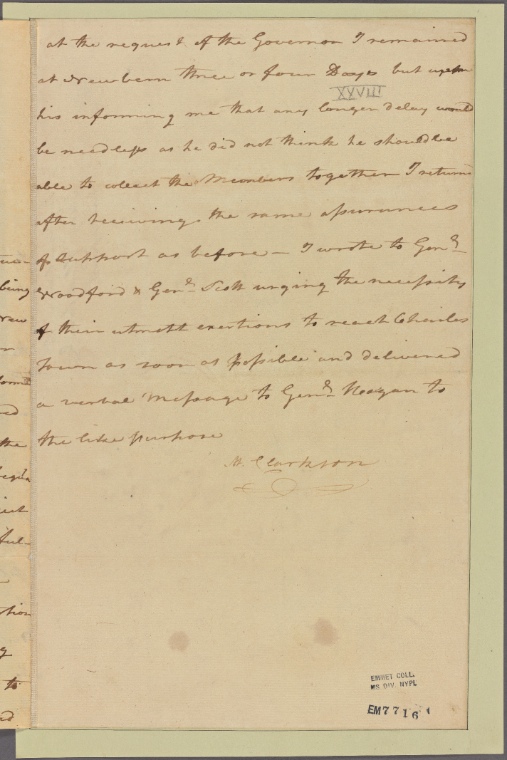 at the request of the Governor I remained
at Newbern three or four Days but upon
XXVIII
his informing me that any longer delay would
be needless as he did not think he should be
able to colect the Members together I return
after receiving the same assurances
of Support as before – I wrote to Genl
Woodford & Genl Scott urging the necessity
of their utmost exertions to reach Charles
Town as soon as possible and delivered
a verbal Message to Genl Hogan to
the like purpose
M. Clarkson
being
the
to
EMMET COLL.
MS. DIV. NYPL
EM7716